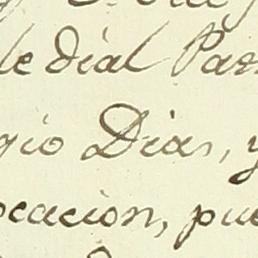 le dial Par
gio Dias, y
ocacion, pue